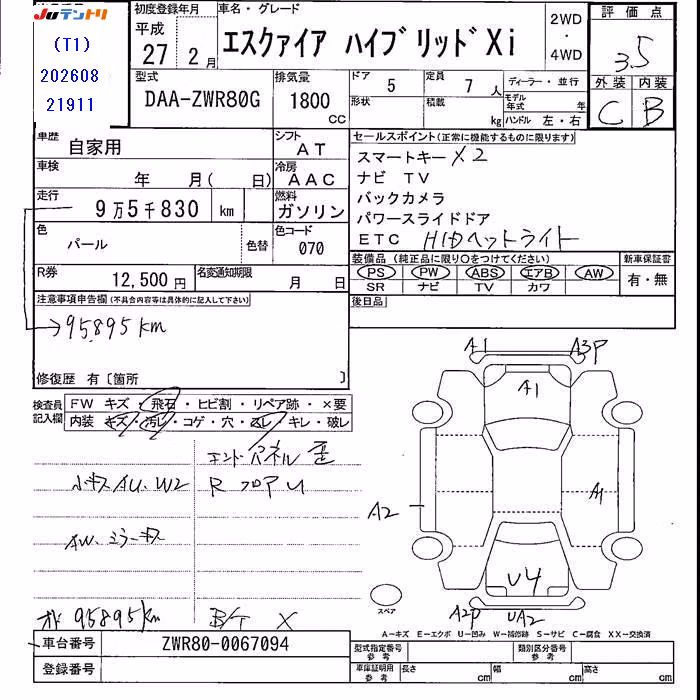 JUテントリ
(T1)
202608
21911
初度登録年月
平成
27年 2月
車名・グレード
エスクァイア ハイブリッドXi
2WD
・
4WD
評価点
3.5
外装 内装
C B
型式
DAA-ZWR80G
排気量
1800
CC
ドア 5
定員 7人
ディーラー・並行
形状
積載 kg
モデル年式 年
ハンドル 左・右
車歴 自家用
シフト AT
車検 年 月( 日)
冷房 AAC
走行 9万5千830 km
燃料 ガソリン
色 パール
色替
色コード 070
R券 12,500円
名変通知期限 月 日
セールスポイント(正常に機能するものに限ります)
スマートキー X2
ナビ TV
バックカメラ
パワースライドドア
ETC HIDヘットライト
装備品(純正品に限り○をつけてください)
新車保証書
PS PW ABS エアB AW
SR ナビ TV カワ
有・無
後日品
注意事項申告欄(不具合内容等は具体的に記入して下さい)
95895km
修復歴 有〔箇所 〕
検査員記入欄
FW キズ・飛石・ヒビ割・リペア跡・×要
内装 キズ・汚レ・コゲ・穴・スレ・キレ・破レ
エンドパネル 歪
小キスAU、W2
RフロアU
AW、ミラーキス
オド 95895km
B/T X
A1
A3P
A1
A2
A1
U4
A2P
UA2
スペア
A-キズ E-エクボ U-凹み W-補修跡 S-サビ C-腐食 XX-交換済
車台番号 ZWR80-0067094
登録番号
型式指定番号 参考
類別区分番号 参考
車庫証明用 参考
長さ cm
幅 cm
高さ cm